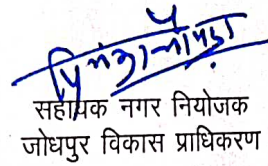 सहायक नगर नियोजक
जोधपुर विकास प्राधिकरण